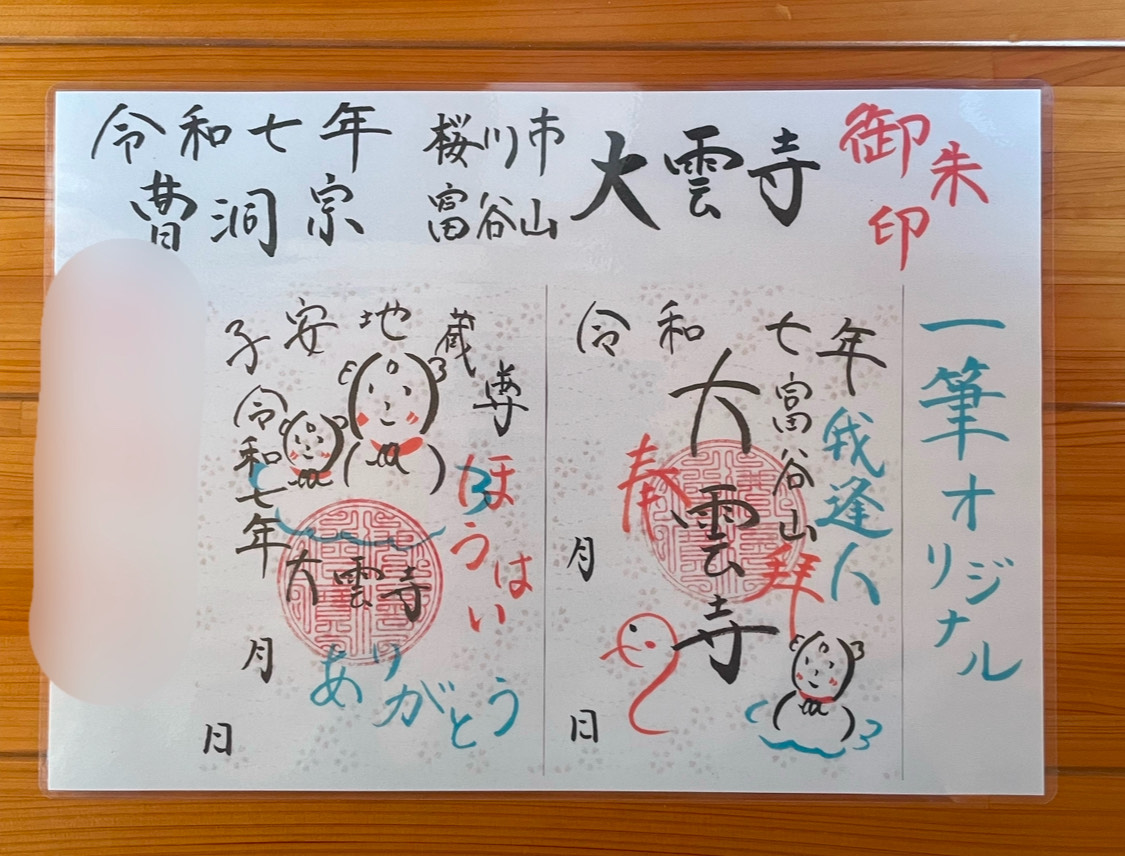 令和七年
曹洞宗
桜川市
富谷山
大雲寺
御朱印
一筆オリジナル
令和七年
我逢人
富谷山
奉拝
大雲寺
月
日
子安地蔵尊
令和七年
大雲寺
ありがとう
月
日